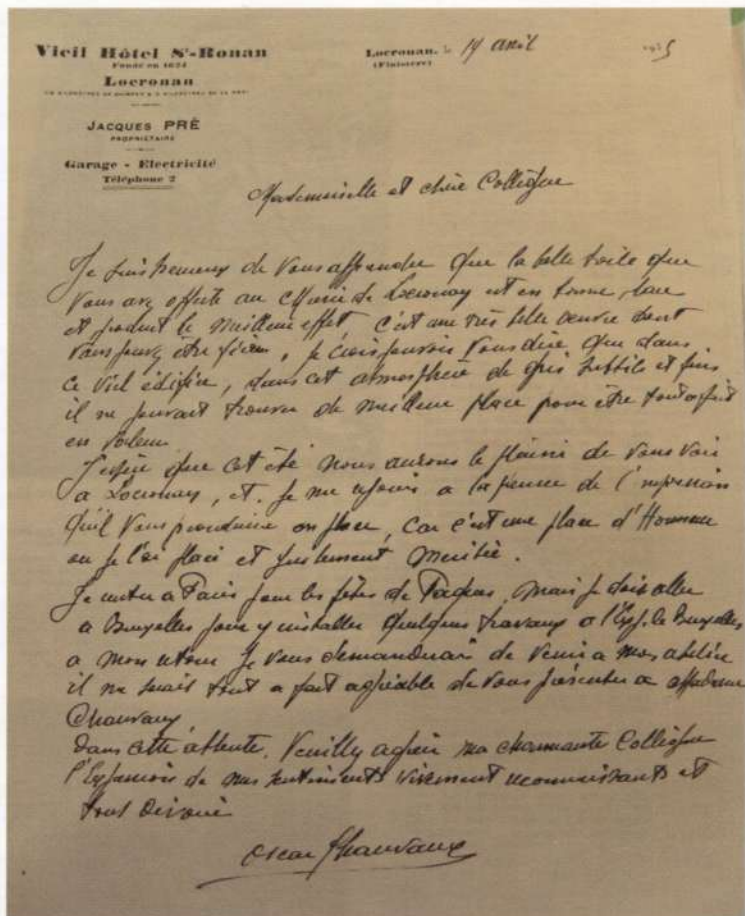 Vieil Hôtel St-Ronan
Fondé en 1624
Locronan
JACQUES PRÉ
PROPRIÉTAIRE
Garage - Electricité
Téléphone 2
Locronan, le 14 avril
(Finistère)
Mademoiselle et chère Collègue
Je suis heureux de vous apprendre que la belle toile que
vous avez offerte au Musée de Locronan est en bonne place
et produit le meilleur effet c'est une très belle œuvre dont
vous pouvez être fière, je crois pouvoir vous dire que dans
ce vieil édifice, dans cet atmosphère de gris subtils et fins
il ne pouvait trouver de meilleure place pour être tout à fait
en valeur
J'espère que cet été nous aurons le plaisir de vous voir
a Locronan, et je me réjouis a la pensée de l'impression
qu'il vous produira en place, car c'est une place d'Honneur
ou je l'ai placé et justement méritée.
Je rentre a Paris pour les fêtes de Pâques, mais je dois aller
a Bruxelles pour y installer quelques travaux a l'Exp. de Bruxelles
a mon retour je vous demanderai de venir a mon atelier
il me serait tout a fait agréable de vous présenter a Madame
Chauvaux
dans cette attente. Veuillez agréer ma charmante Collègue
l'Expression de mes sentiments vivement reconnaissants et
tout dévoué
Oscar Chauvaux